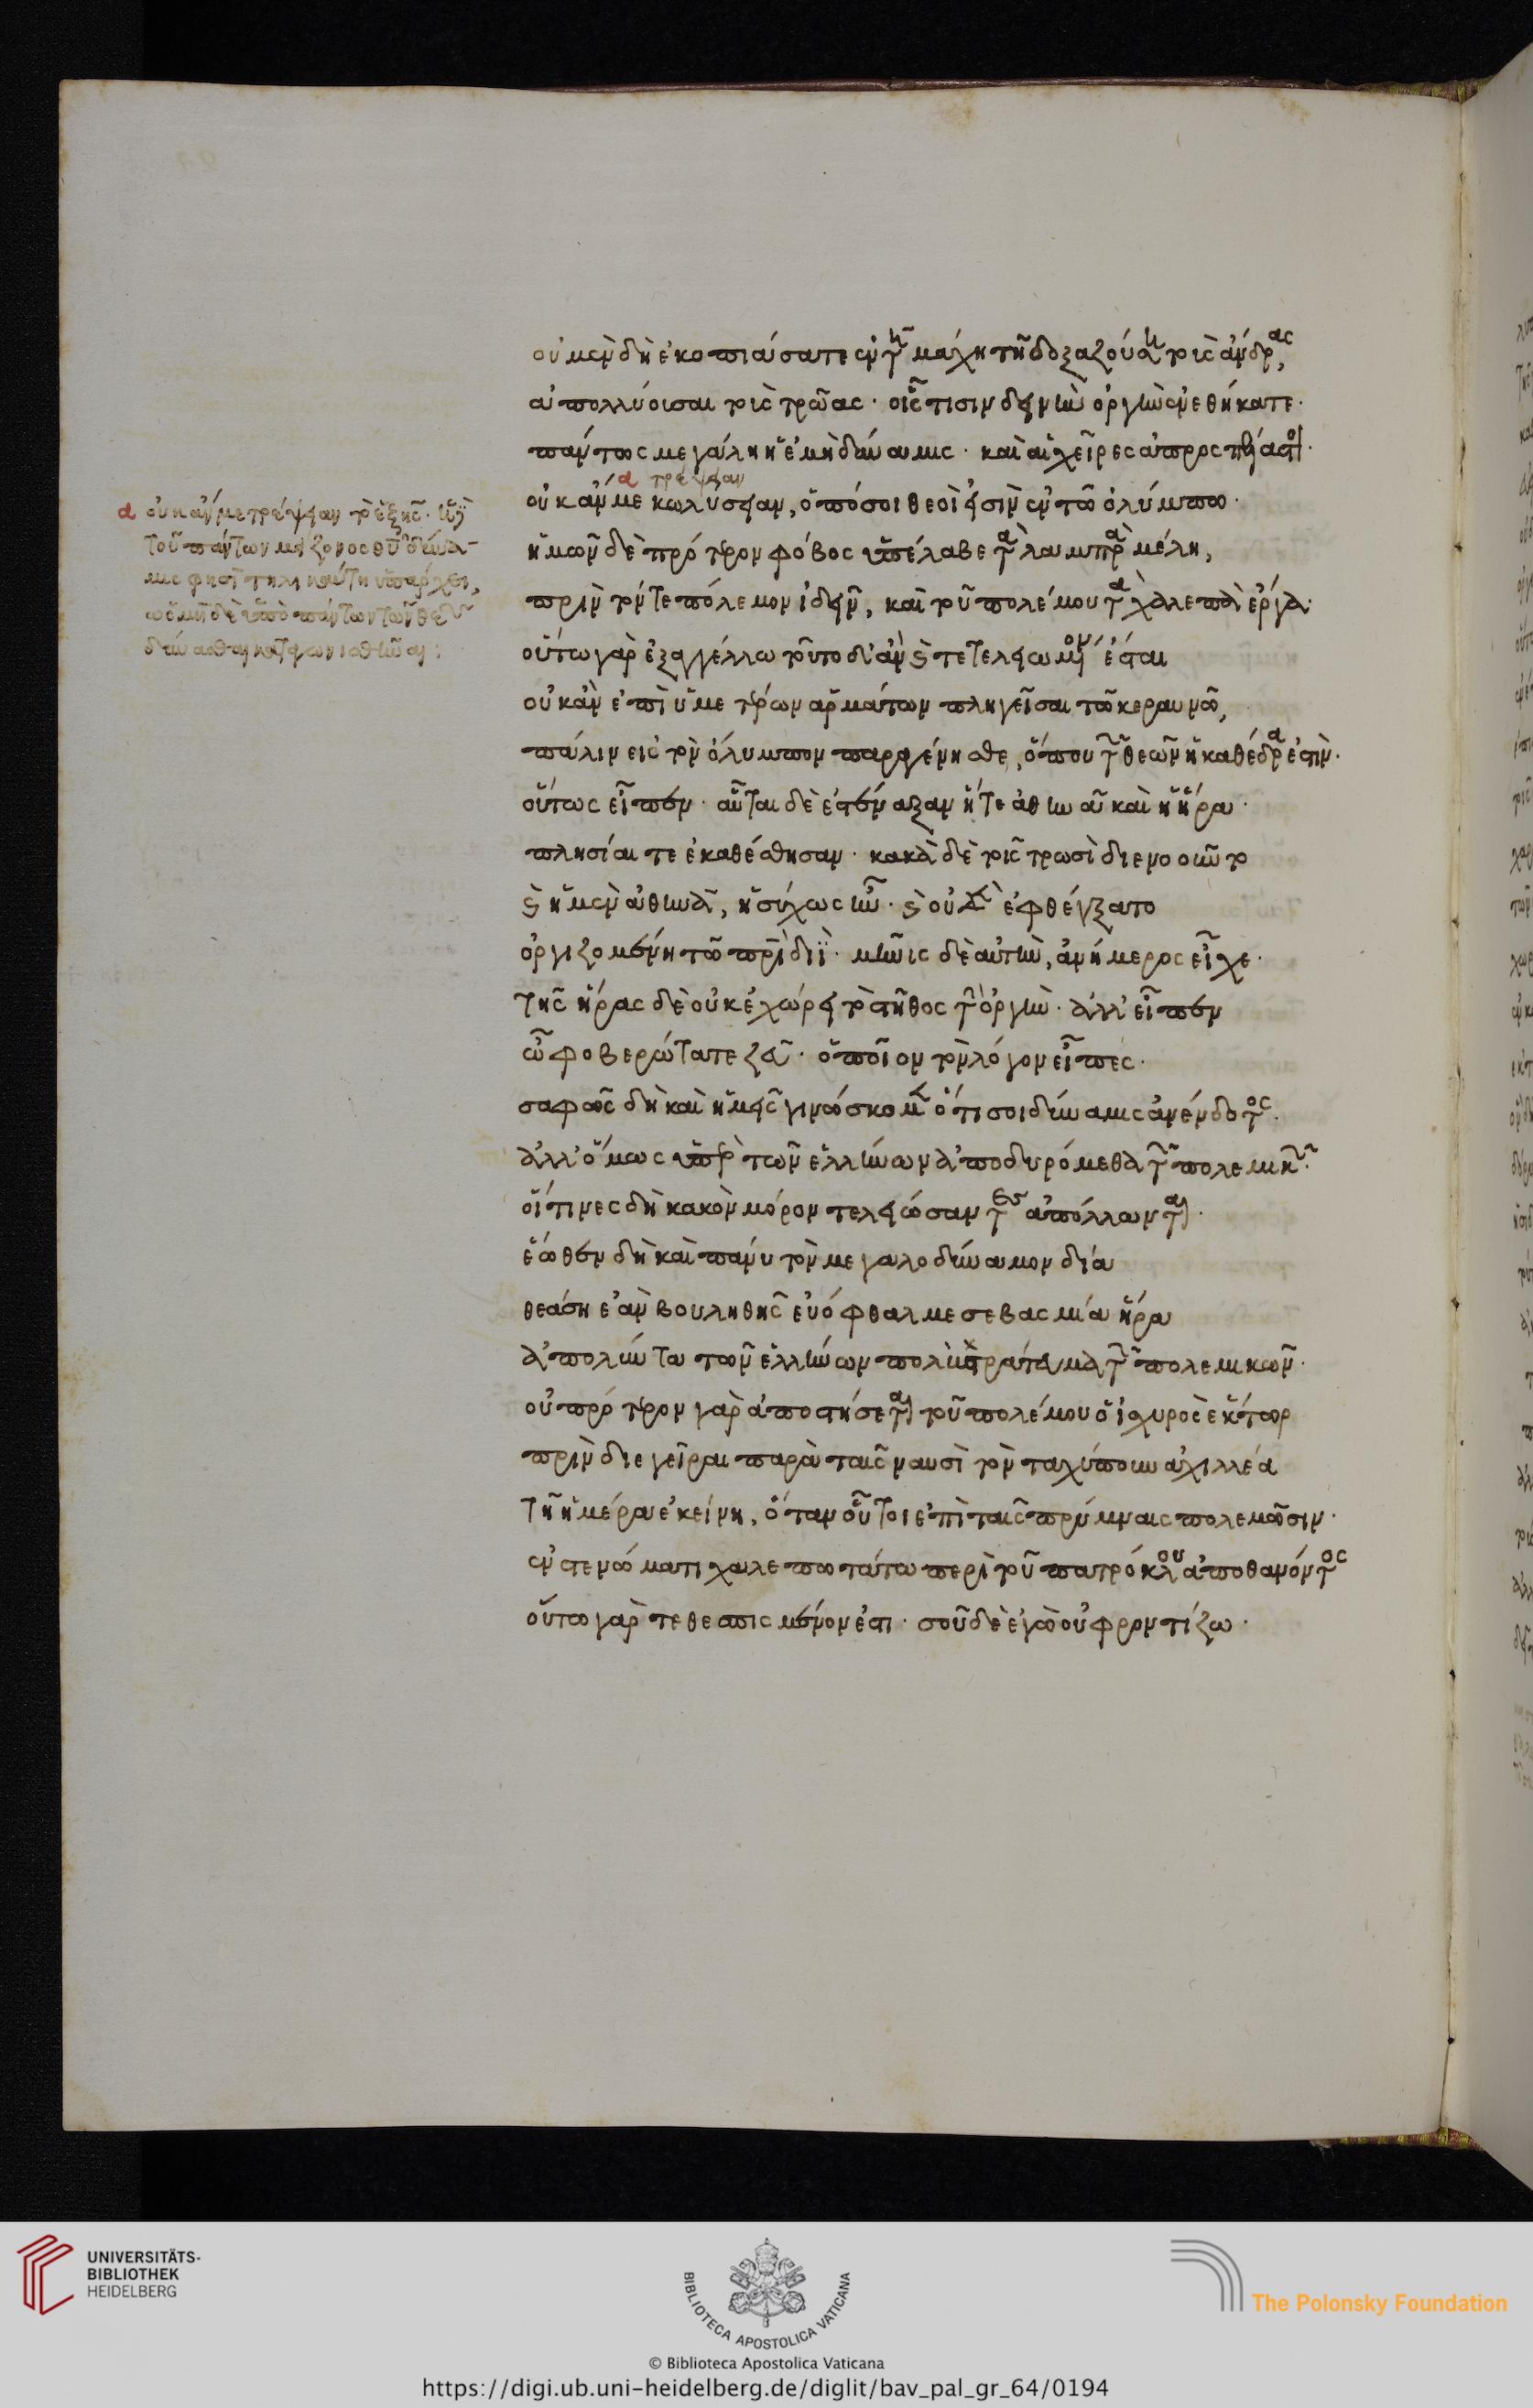 οὐ μὲν δὴ ἐκοπιάσατε ἐν τῇ μάχῃ τῇ δοξαζούσῃ τοὺς ἄνδρας,
ἀπολλύοισαι τοὺς τρῶας· οἷς τισιν δεινὴν ὀργὴν ἐνεθήκατε·
πάντως μεγάλη ἡ ἐμὴ δύναμις· καὶ αἱ χεῖρες ἀπροσπέλαστοι·
α τρέψειαν
οὐκ ἄν με κωλύσειαν, ὁπόσοι θεοὶ εἰσὶν ἐν τῶ ὀλύμπω·
ἡμῶν δὲ πρότερον φόβος ὑπέλαβε τὰ λαμπρὰ μέλη,
πρὶν τόν τε πόλεμον ἰδεῖν, καὶ τοῦ πολέμου τὰ χαλεπὰ ἔργα·
οὕτω γὰρ ἐξαγγέλλω τοῦτο δ' ἂν καὶ τετελειωμένον ἔσται
οὐκ ἂν ἐπὶ ὑμετέρων ἁρμάτων πληγεῖσαι τῶ κεραυνῶ,
πάλιν εἰς τὸν όλυμπον παρεγένησθε, ὅπου τῶν θεῶν ἡ καθέδρα ἐστὶν·
οὕτως εἶπεν· αὗται δὲ ἐστέναξαν ἥ τε ἀθηνᾶ καὶ ἡ ἥρα·
πλησίαι τε ἐκαθέσθησαν· κακὰ δὲ τοῖς τρωσὶ διενοοῦντο
καὶ ἡ μὲν ἀθηνᾶ, ἡσύχως ἦν· καὶ οὐδὲν ἐφθέγξατο
ὀργιζομένη τῶ πατρὶ διῒ· μῆνις δὲ αὐτὴν, ἀνήμερος εἶχε·
τῆς ἥρας δὲ οὐκ ἐχώρει τὸ στῆθος τὴν ὀργὴν· ἀλλ' εἶπεν
ὦ φοβερώτατε ζεῦ· ὁποῖον τὸν λόγον εἶπες·
σαφῶς δὴ καὶ ἡμεῖς γινώσκομεν ὅτι σοι δύναμις ἀνένδοτος·
ἀλλ' ὅμως ὑπὲρ τῶν ἑλλήνων ἀποδυρόμεθα τῶν πολεμικῶν·
οἵτινες δὴ κακὸν μόρον τελειώσαντες ἀπόλλωνται·
ἕωθεν δὴ καὶ πάνυ τὸν μεγαλοδύναμον δία
θεάση ἐὰν βουληθῆς εὐόφθαλμε σεβασμία ἥρα
ἀπολύντα τῶν ἑλλήνων πολὺ στράτευμα τῶν πολεμικῶν·
οὐ πρότερον γὰρ ἀποστήσεται τοῦ πολέμου ὁ ἰσχυρὸς ἕκτωρ
πρὶν διεγεῖραι παρὰ ταῖς ναυσὶ τὸν ταχύπουν ἀχιλλέα
τῆ ἡμέρα ἐκείνη, ὅταν οὗτοι ἐπὶ ταῖς πρύμναις πολεμῶσιν·
ἐν στενώματι χαλεπωτάτω περὶ τοῦ πατρόκλου ἀποθανόντος
οὕτω γὰρ τεθεσπισμένον ἐστι· σοῦ δὲ ἐγὼ οὐ φροντίζω·
α οὐκ ἄν με τρέψειαν τὸ ἑξῆς·
τοῦ πάντων μείζονος θεοῦ δύνα-
μις φησὶ
ὑπὸ πάντων τῶν θεῶν
UNIVERSITÄTS-
BIBLIOTHEK
HEIDELBERG
BIBLIOTECA APOSTOLICA VATICANA
The Polonsky Foundation
© Biblioteca Apostolica Vaticana
https://digi.ub.uni-heidelberg.de/diglit/bav_pal_gr_64/0194